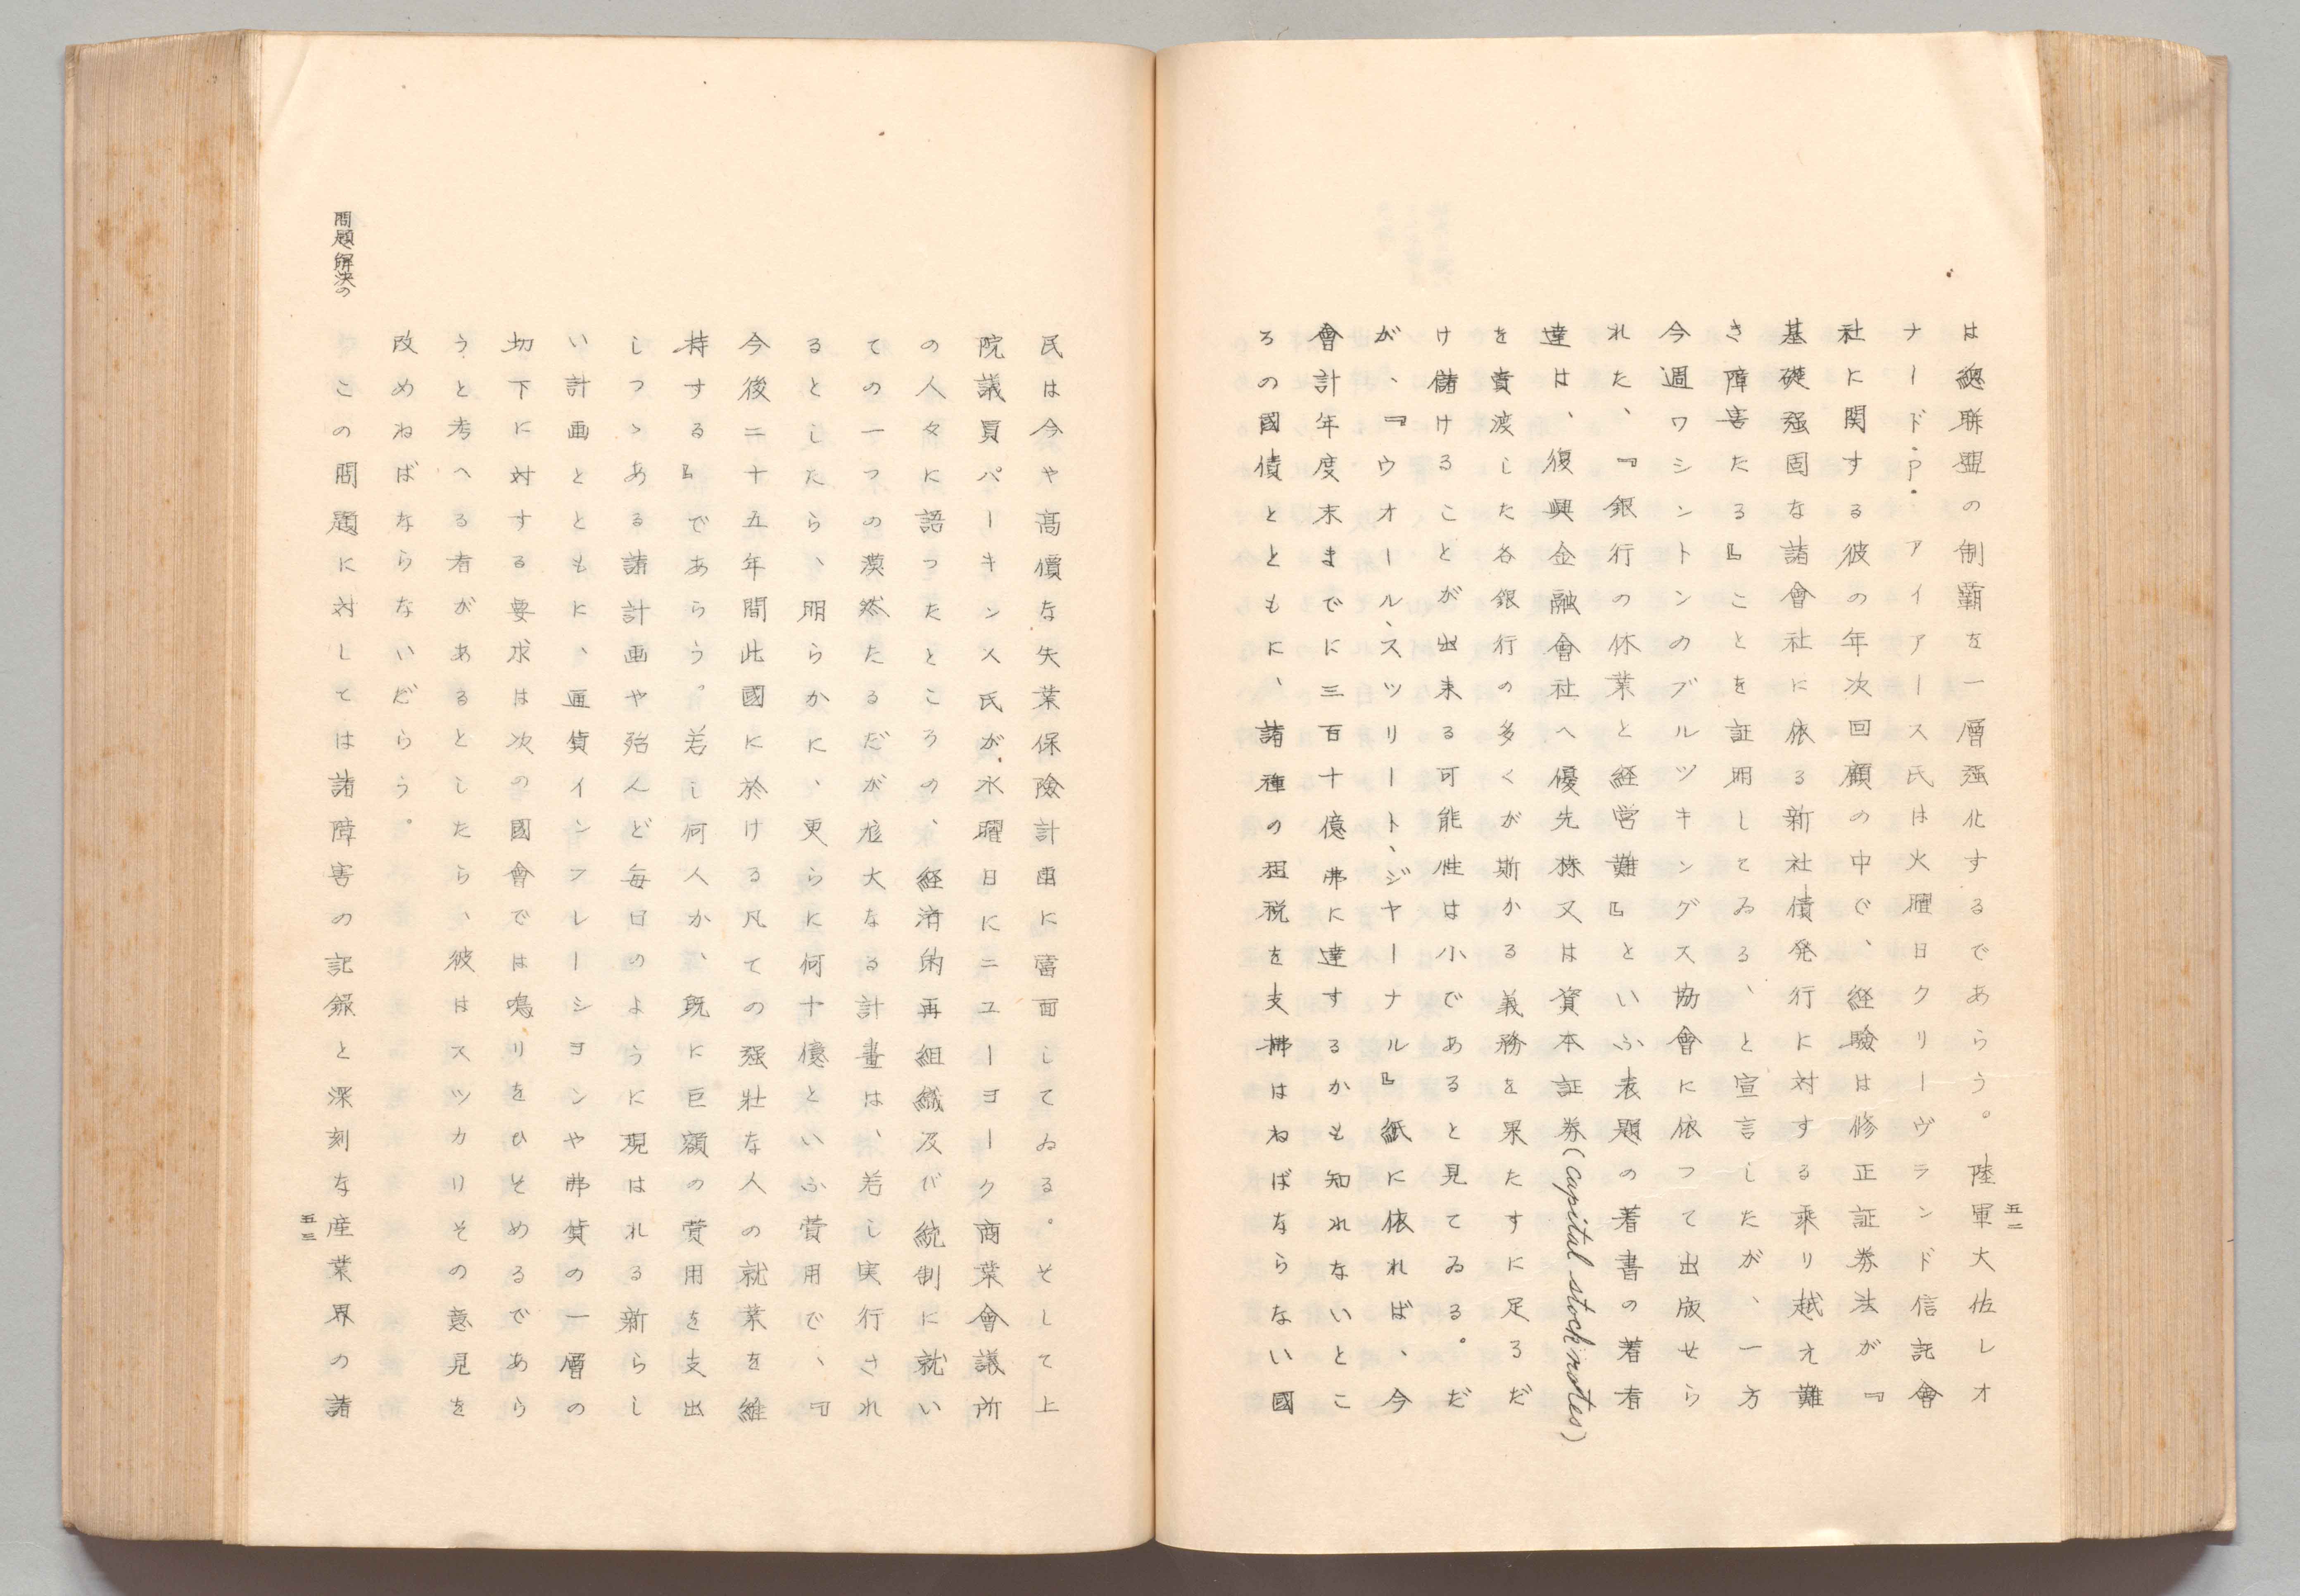 は總聯盟の制覇を一層强化するであらう。陸軍大佐レオ
ナード・P・アイアアース氏は火曜日クリーヴランド信託會
社に関する彼の年次回顧の中で、経驗は修正証券法が『
基礎强固な諸會社に依る新社債発行に対する乘り越え難
き障害たる』ことを証明してゐる、と宣言したが、一方
今週ワシントンのブルツキングス協會に依つて出版せら
れた、『銀行の休業と経営難』といふ表題の著書の著者
達は、復興金融會社へ優先株又は資本証券(capital stock notes)
を賣渡した各銀行の多くが斯かる義務を果たすに足るだ
け儲けることが出来る可能性は小であると見てゐる。だ
が、『ウオール、スツリート、ジヤーナル』紙に依れば、今
會計年度末までに三百十億弗に達するかも知れないとこ
ろの國債とともに、諸種の租税を支拂はねばならない國
五二
民は今や高價な失業保險計画に當面してゐる。そして上
院議員パーキンス氏が、水曜日にニユーヨーク商業會議所
の人々に語つたところの、経済的再組織及び統制に就い
ての一つの漠然たるだが尨大なる計畫は、若し実行され
るとしたら、明らかに、更らに何十億といふ費用で、『
今後二十五年間此國に於ける凡ての强壯な人の就業を維
持する』であらう。若し何人か、既に巨額の費用を支出
しつゝある諸計画や殆んど毎日のように現はれる新らし
い計画とともに、通貨インフレーシヨンや弗貨の一層の
切下に対する要求は次の國會では鳴りをひそめるであら
うと考へる者があるとしたら、彼はスツカリその意見を
改めねばならないだらう。
問題解決の
この問題に対しては諸障害の記録と深刻な産業界の諸
五三